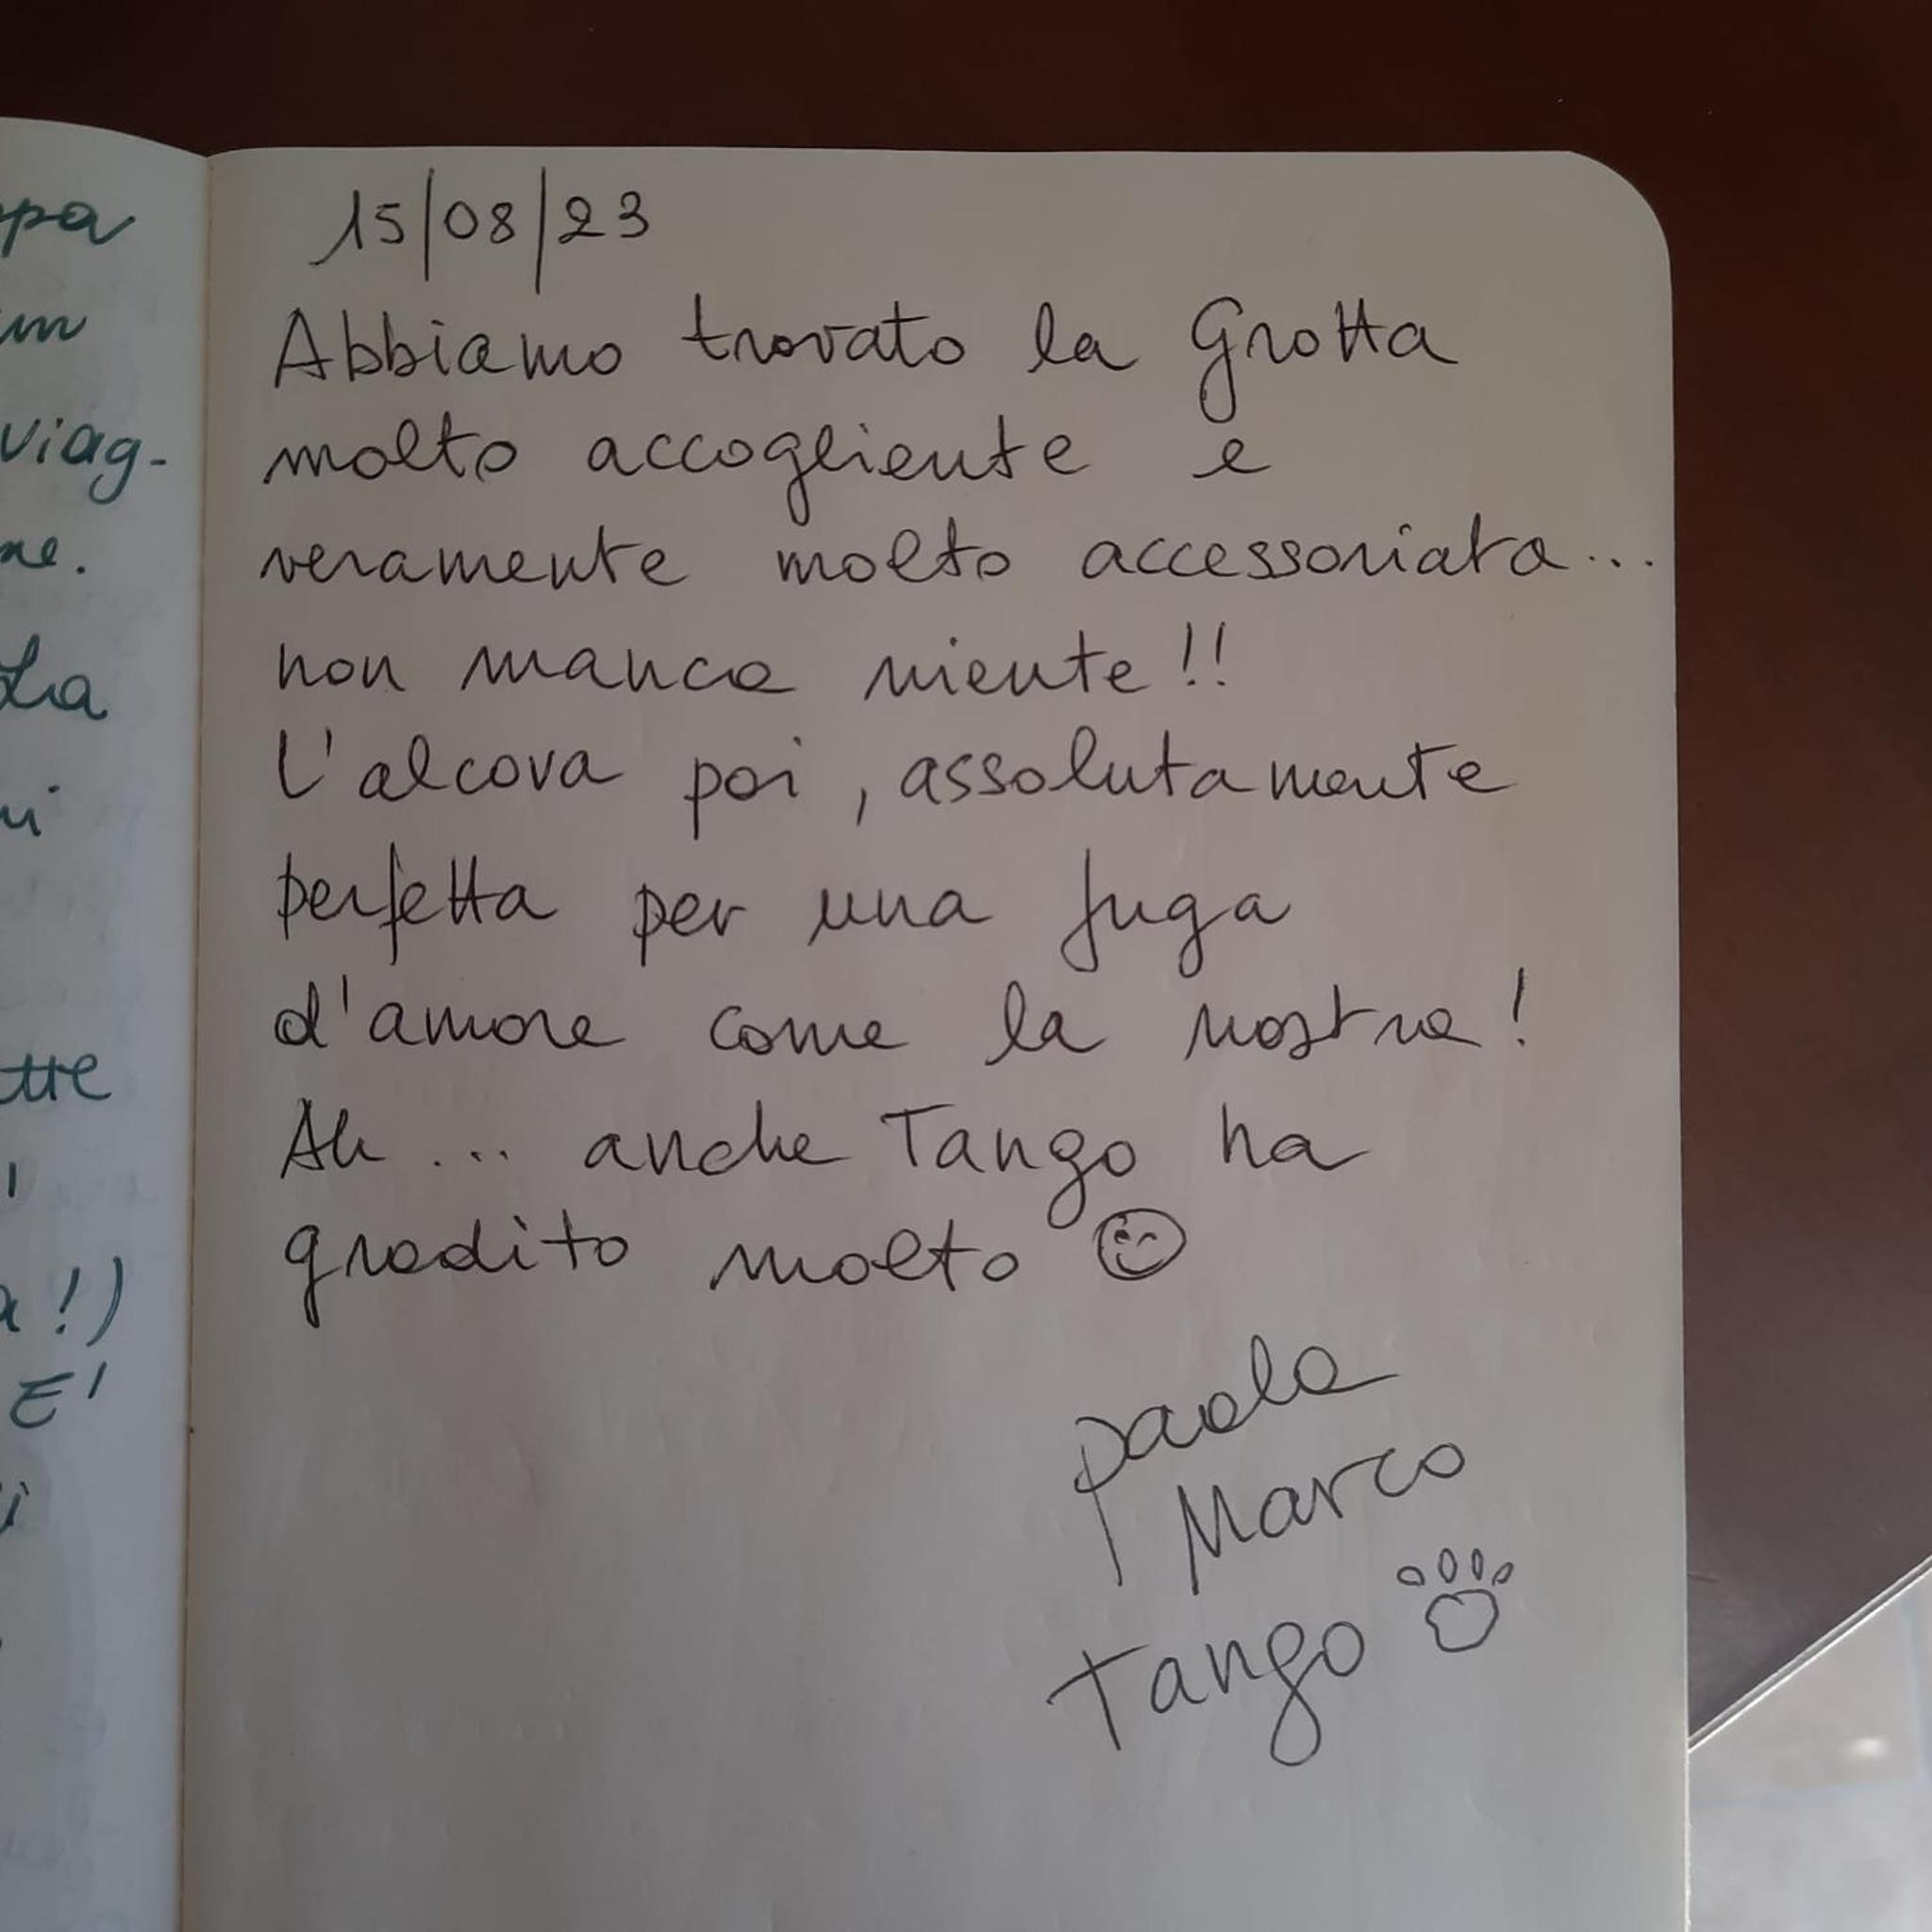 pa
im
viag-
ne.
La
ui
tte
a!)
E'
15/08/23
Abbiamo trovato la Grotta
molto accogliente e
veramente molto accessoriata...
non manca niente!!
L'alcova poi, assolutamente
perfetta per una fuga
d'amore come la nostra!
Ah... anche Tango ha
gradito molto
Paola
Marco
Tango